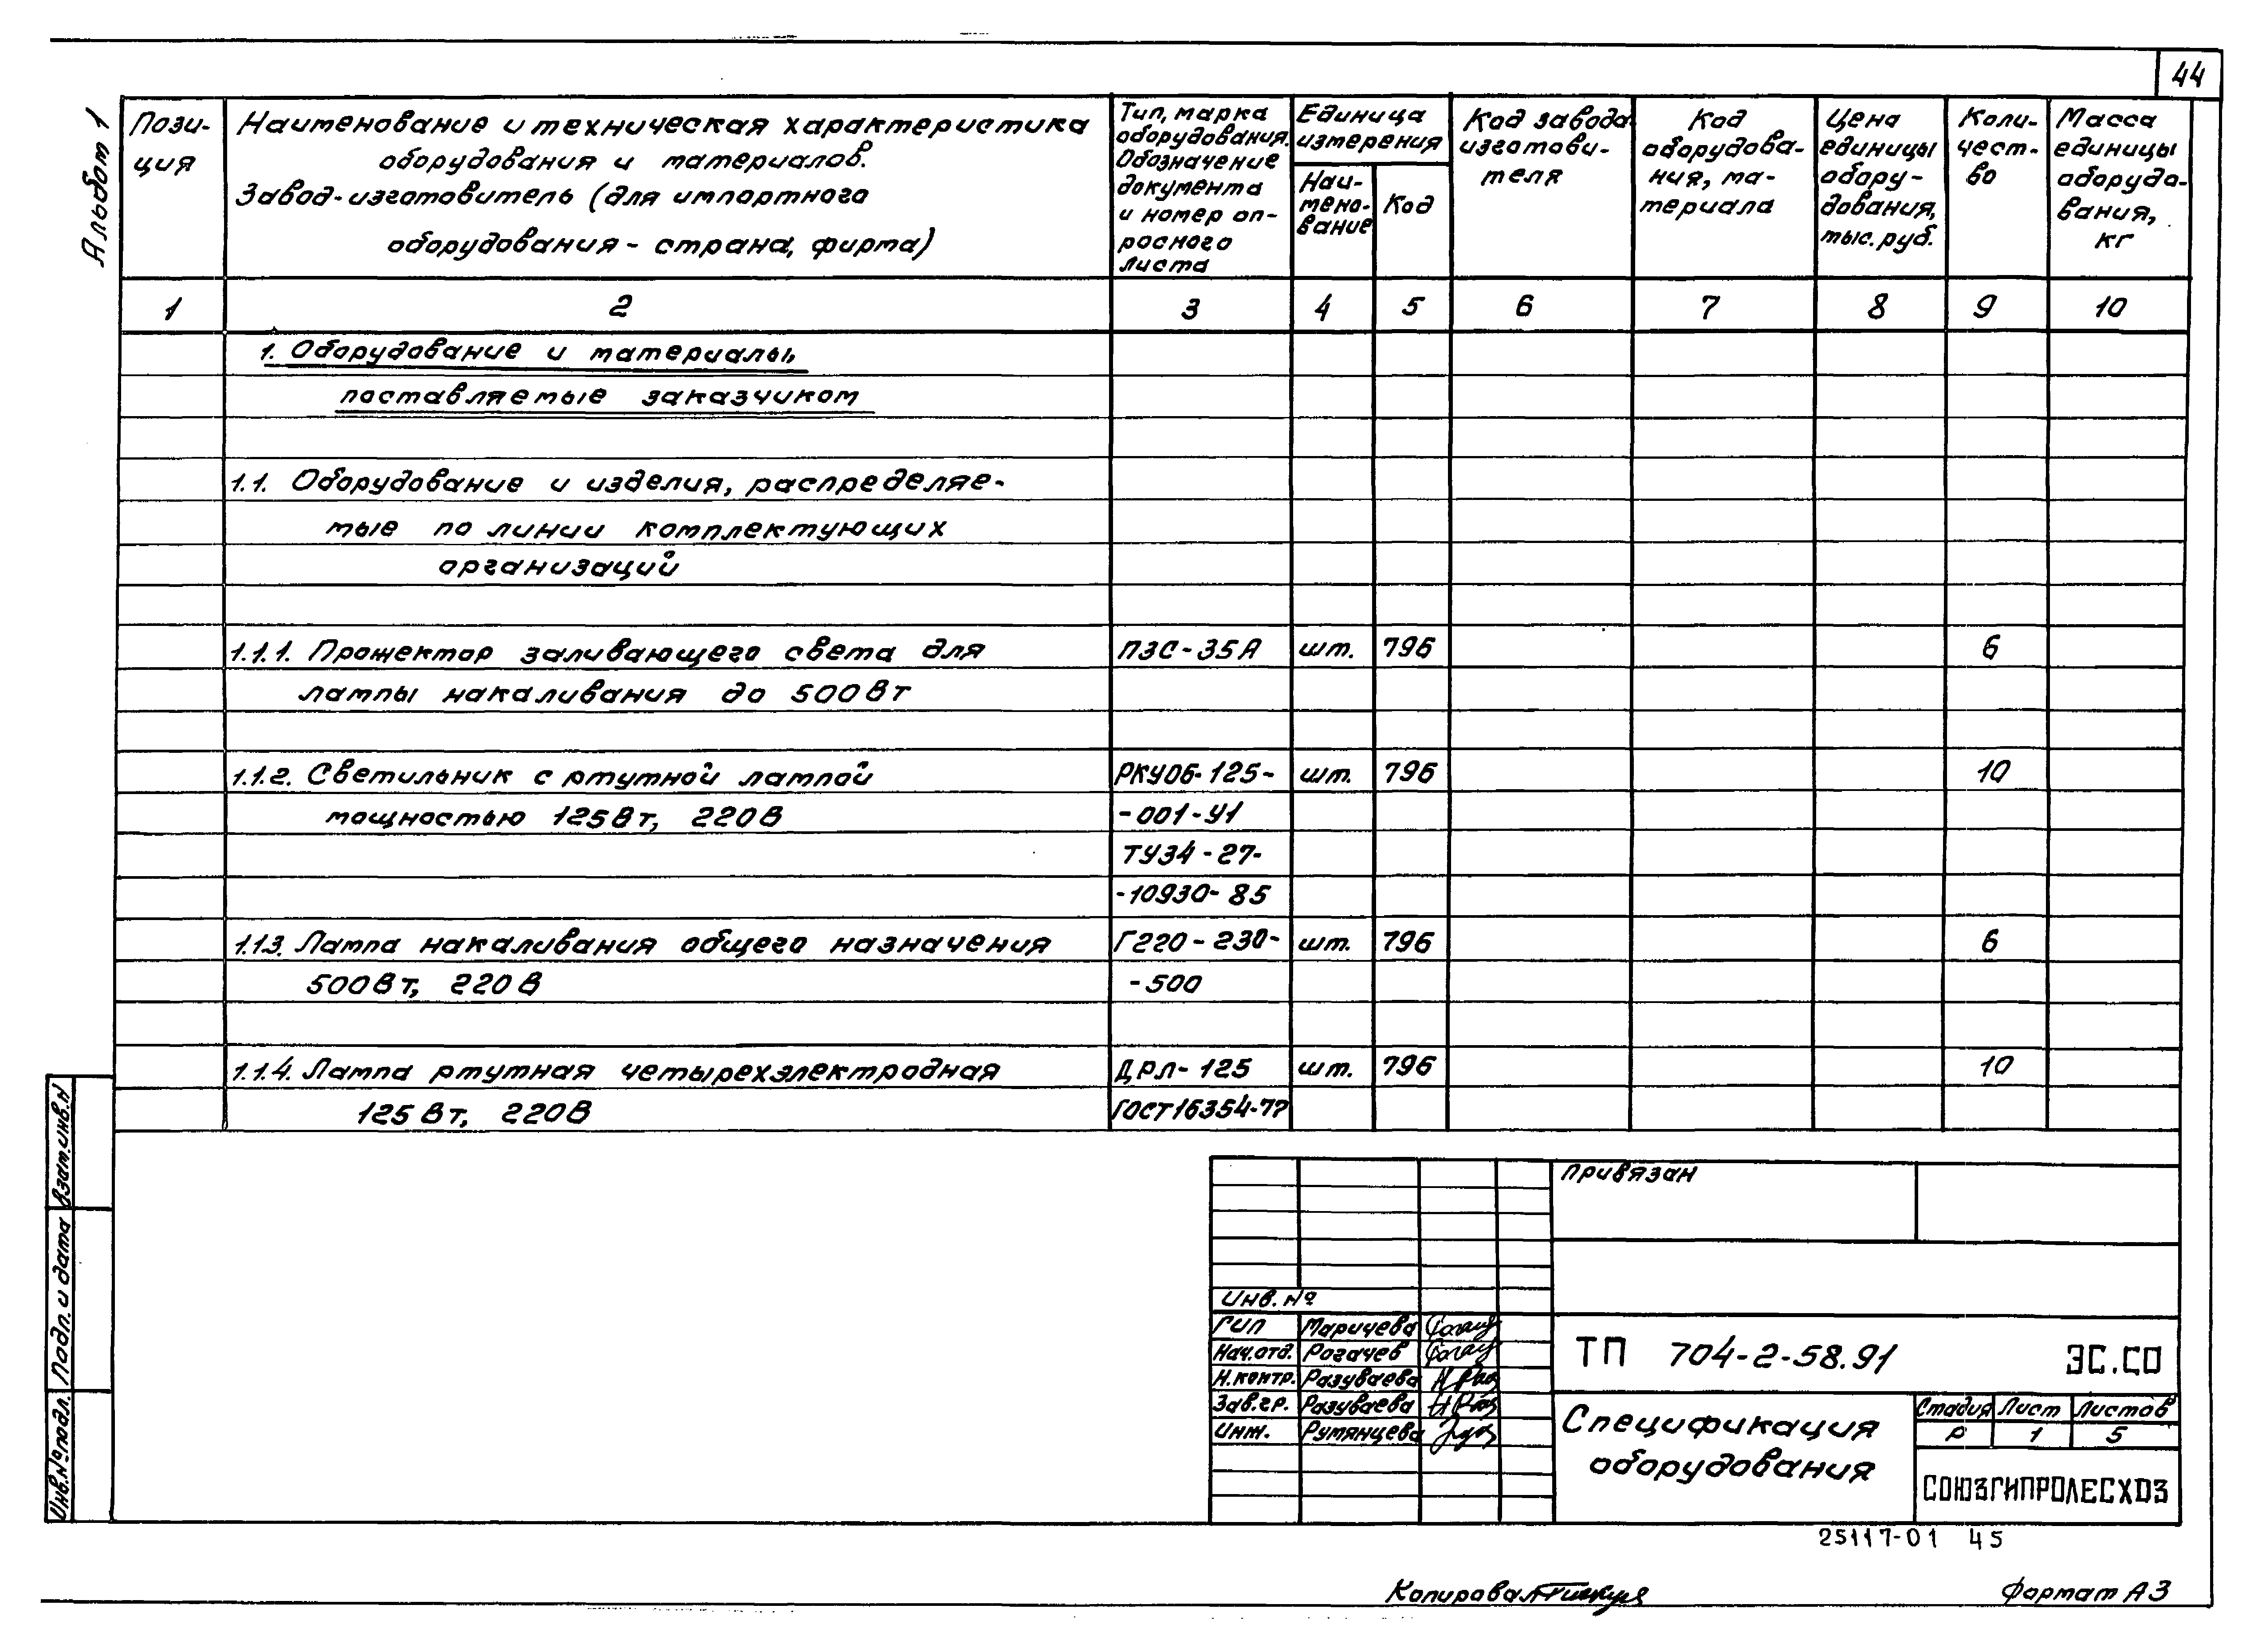 44
Альбом 1
Пози-
ция
Наименование и техническая характеристика
оборудования и материалов.
Завод-изготовитель (для импортного
оборудования - страна, фирма)
Тип, марка
оборудования.
Обозначение
документа
и номер оп-
росного
листа
Единица
измерения
Наи-
мено-
вание
Код
Код завода
изготови-
теля
Код
оборудова-
ния, ма-
териала
Цена
единицы
обору-
дования,
тыс. руб.
Коли-
чест-
во
Масса
единицы
оборудо-
вания,
кг
1 2 3 4 5 6 7 8 9 10
1. Оборудование и материалы,
поставляемые заказчиком
1.1. Оборудование и изделия, распределяе-
мые по линии комплектующих
организаций
1.1.1. Прожектор заливающего света для ПЗС-35А шт. 796 6
лампы накаливания до 500Вт
1.1.2. Светильник с ртутной лампой РКУ06-125- шт. 796 10
мощностью 125Вт, 220В -001-У1
ТУ34-27-
-10930-85
1.1.3. Лампа накаливания общего назначения Г220-230- шт. 796 6
500Вт, 220В -500
1.1.4. Лампа ртутная четырехэлектродная ДРЛ-125 шт. 796 10
125Вт, 220В ГОСТ16354-77
Взам.инв.N
Подп. и дата
Инв.№подл.
Привязан
Инв. №
ГИП Маричева
Нач.отд. Рогачев
Н.контр. Разуваева
Зав.гр. Разуваева
Инж. Румянцева
ТП 704-2-58.91 ЭС.СО
Спецификация
оборудования
Стадия Лист Листов
Р 1 5
СОЮЗГИПРОЛЕСХОЗ
25117-01 45
Копировал
Формат А3